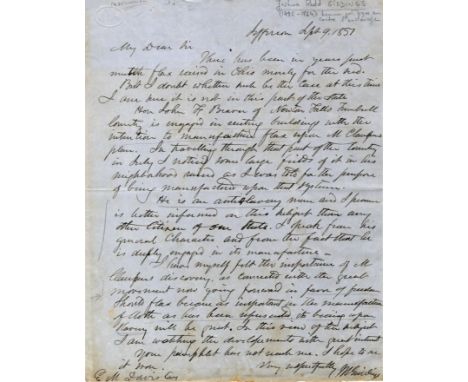 Joshua Reed GIDDINGS
(1795-1864)
Jefferson Sept 9, 1851
My Dear Sir
There has been in years past
much flax raised in Ohio merely for the seed.
But I doubt whether such be the case at this time
I am sure it is not in this part of the State
Hon John F Beaver of Newton Falls Trumbull
County is engaged in erecting buildings with the
intention to manufacture flax upon M Claussens
plan. In travelling through that part of the County
in July I noticed some large fields of it in his
neighborhood raised as I was told for the purpose
of being manufactured upon that system.
He is an antislavery man and I presume
is better informed on this subject than any
other citizen of our State. I speak from his
general character and from the fact that he
is deeply engaged in its manufacture.
I have myself felt the importance of M
Claussens discovery as connected with the great
movement now going forward in favor of freedom
Should flax become as important in the manufacture
of cloth as has been represented, its bearing upon
slavery will be great. In this view of the subject
I am watching the developements with great interest
Your pamphlet has not reached me. I hope to see
it soon.
Very respectfully
E M Davis Esq
J R Giddings